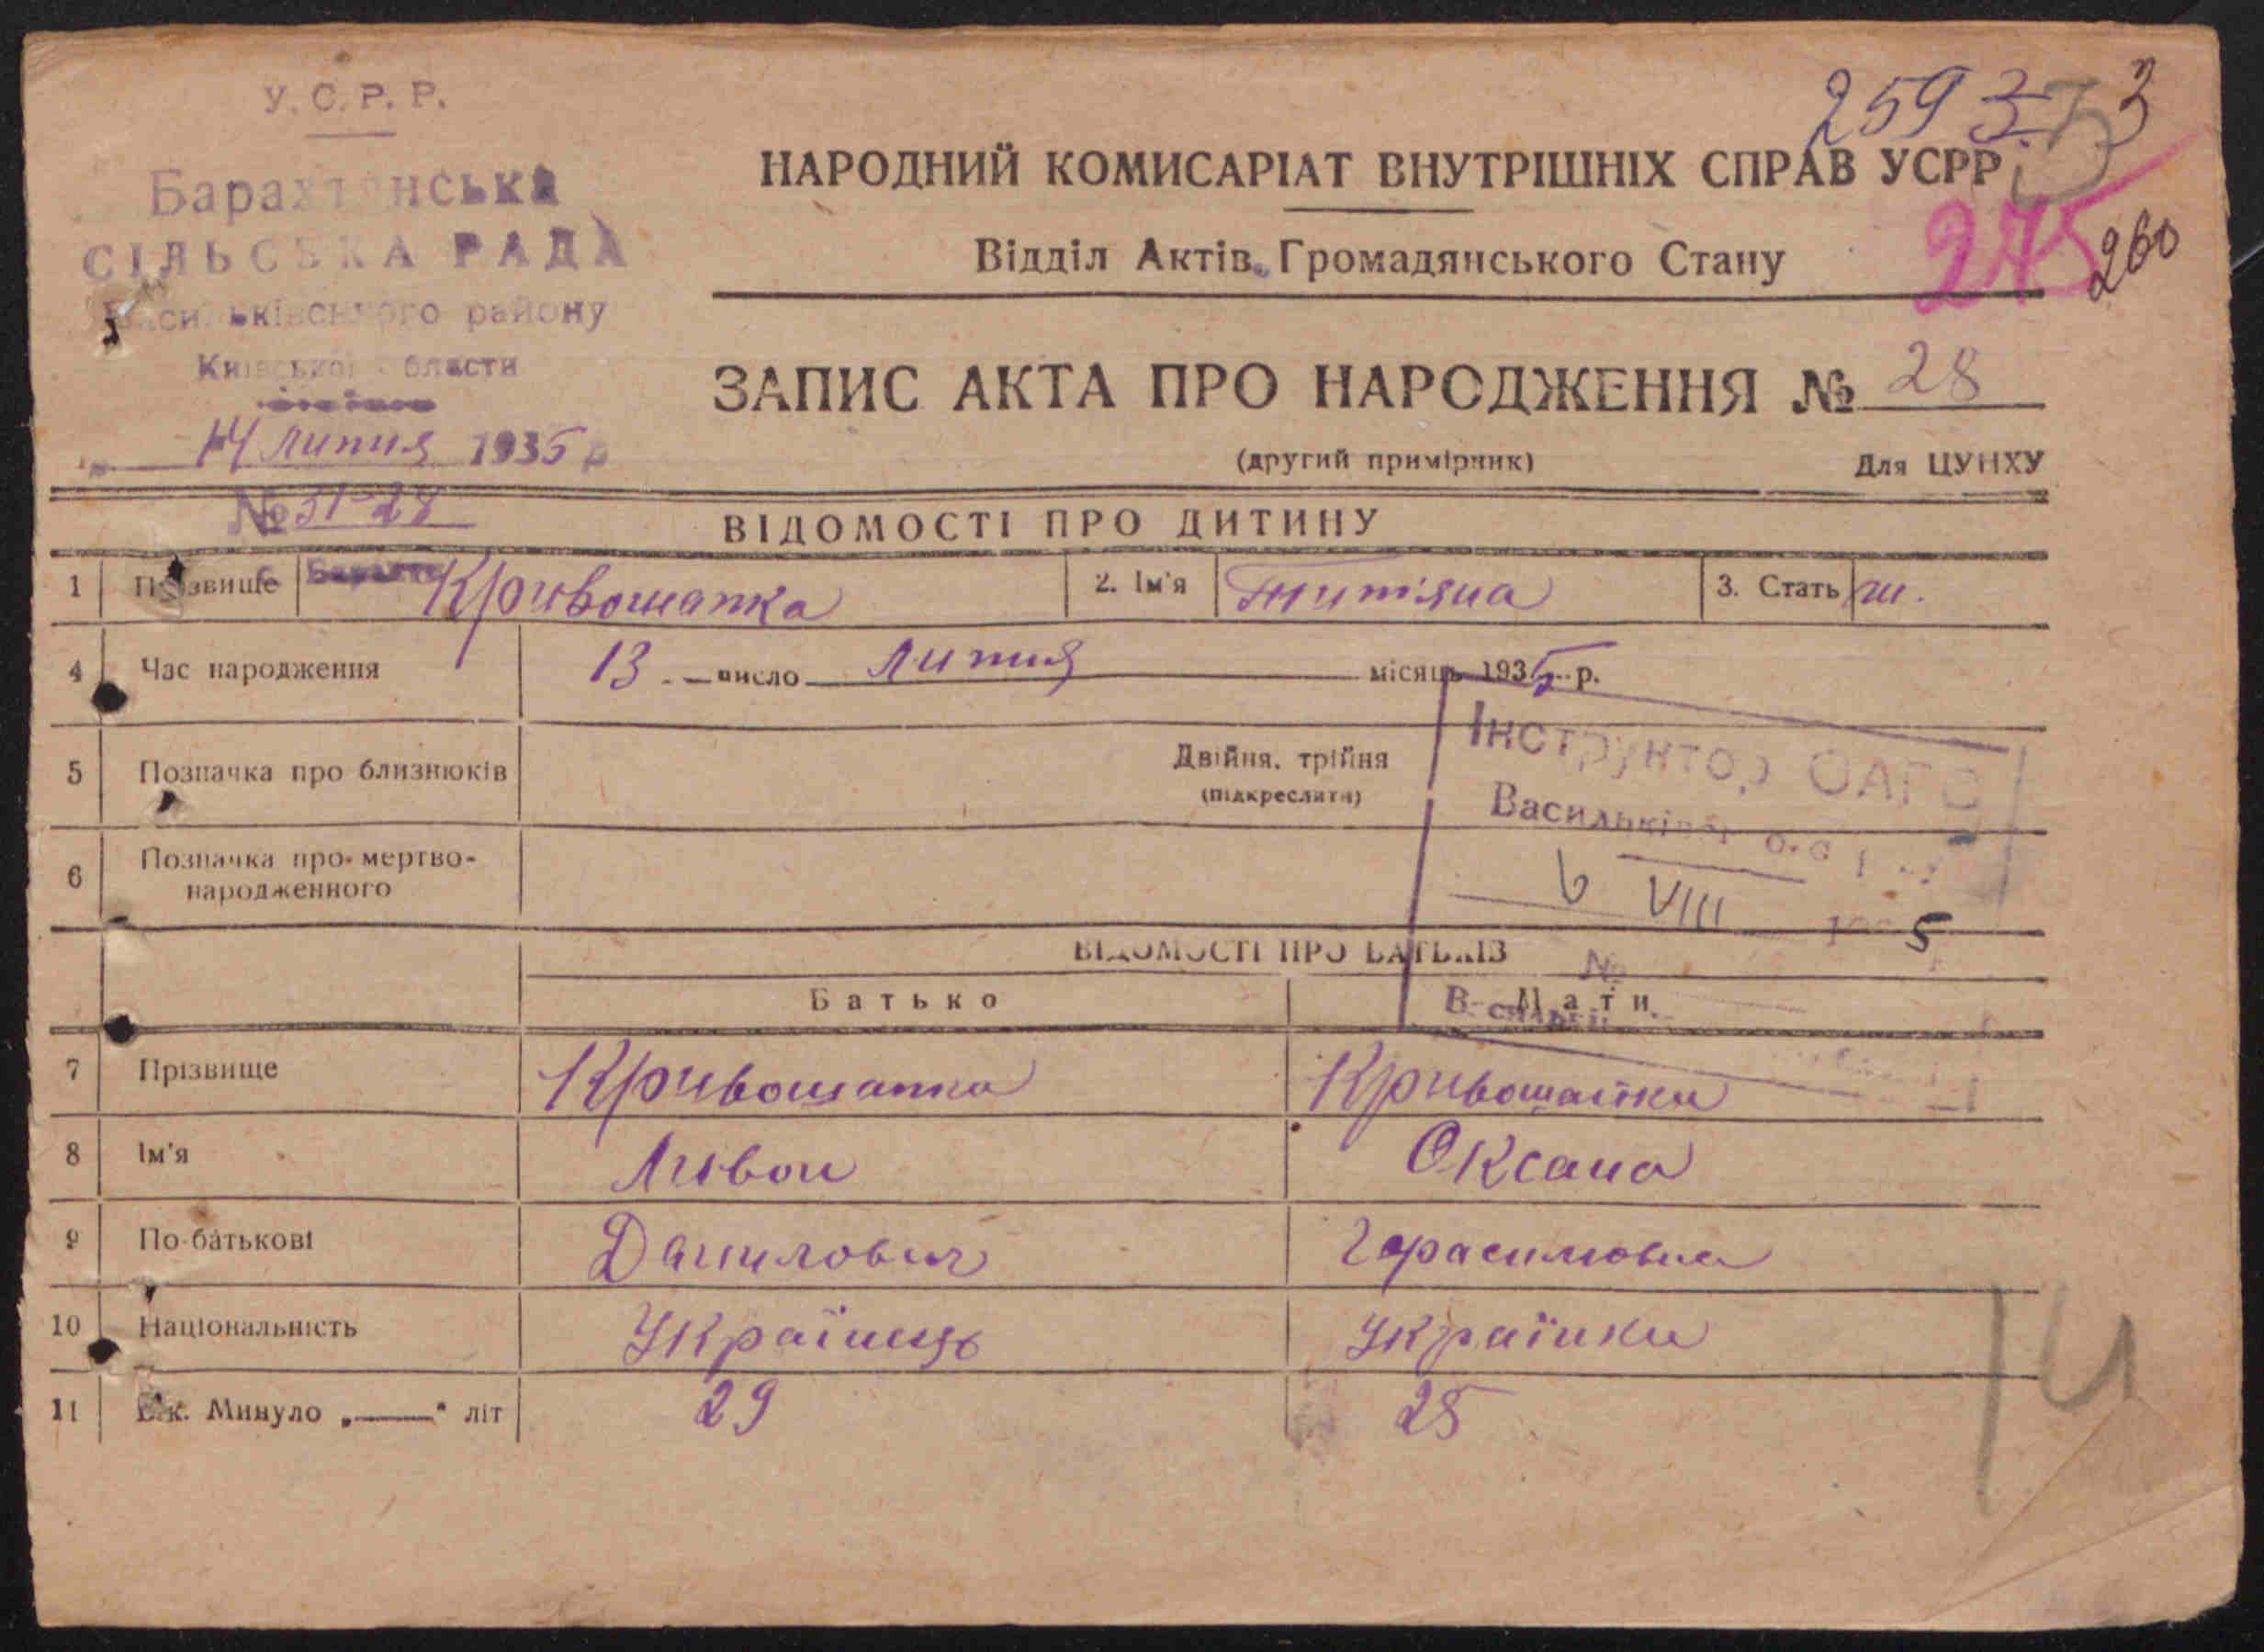 У.С.Р.Р.
Барахтянська
СІЛЬСЬКА РАДА
Васильківського району
Київської области
14 липня 1935 р
№ 31-28
2593
3
275
260
НАРОДНИЙ КОМИСАРІАТ ВНУТРІШНІХ СПРАВ УСРР
Відділ Актів Громадянського Стану
ЗАПИС АКТА ПРО НАРОДЖЕННЯ № 28
(другий примірник) Для ЦУНХУ
ВІДОМОСТІ ПРО ДИТИНУ
1 Прізвище Кривошапка 2. Ім'я Титяна 3. Стать ж.
4 Час народження 13 число липня місяць 1935 р.
5 Позначка про близнюків Двійня, трійня
(підкреслити)
Інструктор ОАГС
6 Позначка про мертво-
народженного
6 VIII 1935
ВІДОМОСТІ ПРО БАТЬКІВ
№
Батько Мати
7 Прізвище Кривошапка Кривошапка
8 Ім'яЛивон Оксана
9 По-батькові Данилович Герасимовна
10 Національність Українець Українка
11 Вік. Минуло „——“ літ 29 25
14